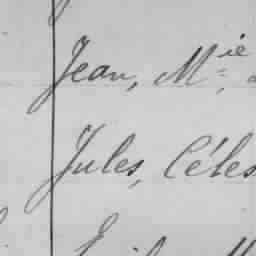 Jean, M^ie,
Jules, Céles